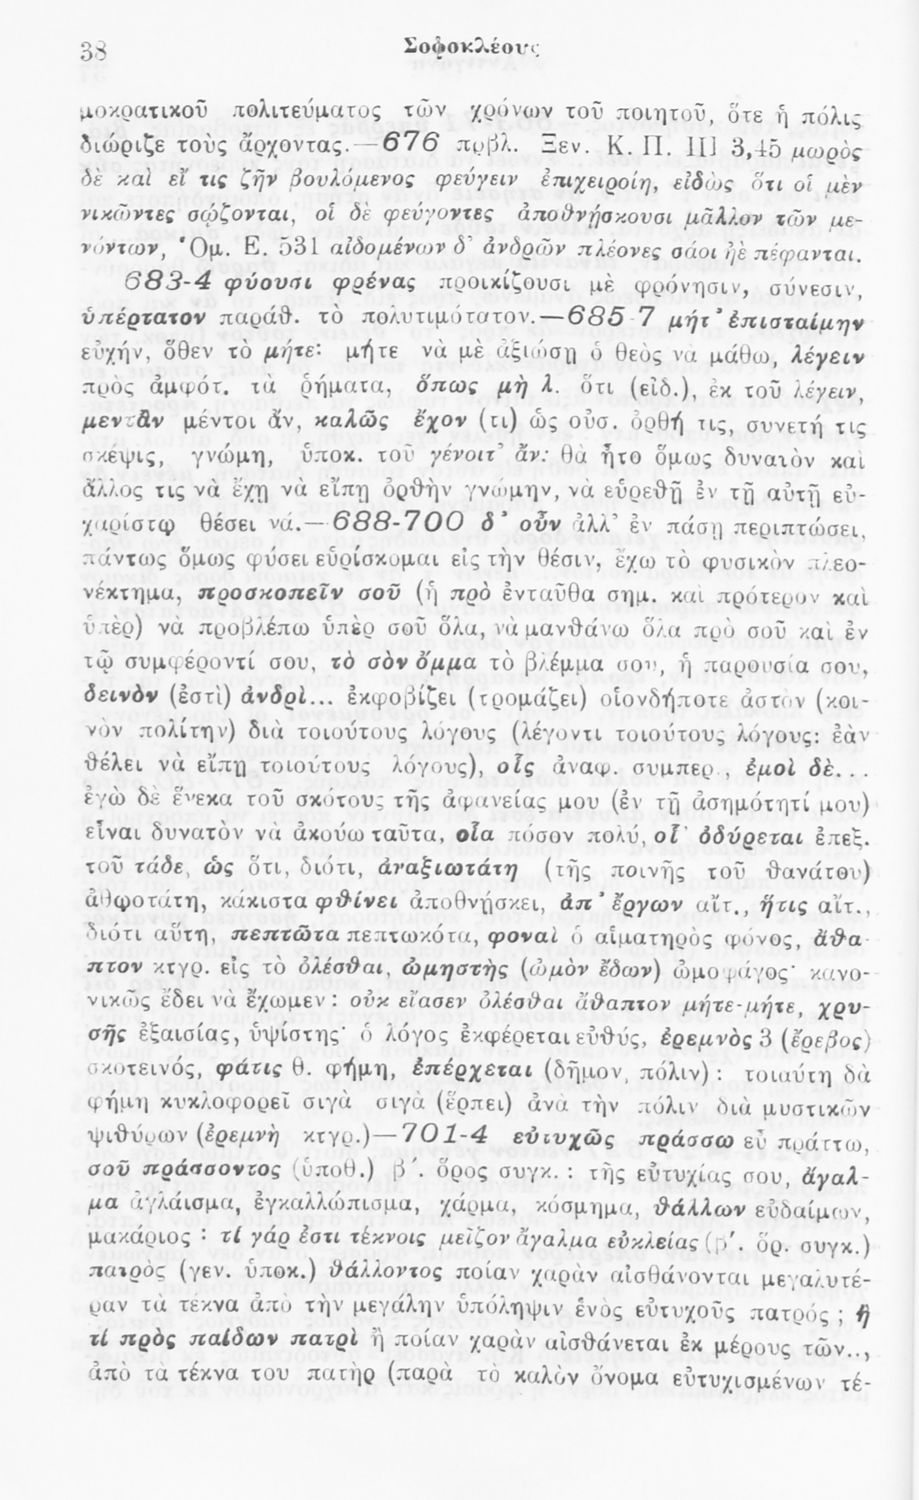 38
Σοφοκλέους
μοκρατικοῦ πολιτεύματος τῶν χρόνων τοῦ ποιητοῦ, ὅτε ἡ πόλις
διώριζε τοὺς ἄρχοντας.—676 πρβλ. Ξεν. Κ. Π. III 3,45 μωρὸς
δὲ καὶ εἴ τις ζῆν βουλόμενος φεύγειν ἐπιχειροίη, εἰδὼς ὅτι οἱ μὲν
νικῶντες σῴζονται, οἱ δὲ φεύγοντες ἀποθνῄσκουσι μᾶλλον τῶν με-
νόντων, Ὁμ. Ε. 531 αἰδομένων δ' ἀνδρῶν πλέονες σάοι ἠὲ πέφανται.
683-4 φύουσι φρένας προικίζουσι μὲ φρόνησιν, σύνεσιν,
ὑπέρτατον παράθ. τὸ πολυτιμότατον.—685 7 μήτ' ἐπισταίμην
εὐχήν, ὅθεν τὸ μήτε: μήτε νὰ μὲ ἀξιώσῃ ὁ θεὸς νὰ μάθω, λέγειν
πρὸς ἀμφότ. τὰ ῥήματα, ὅπως μὴ λ. ὅτι (εἰδ.), ἐκ τοῦ λέγειν,
μεντἂν μέντοι ἄν, καλῶς ἔχον (τι) ὡς οὐσ. ὀρθή τις, συνετή τις
σκέψις, γνώμη, ὑποκ. τοῦ γένοιτ' ἄν: θὰ ἦτο ὅμως δυνατὸν καὶ
ἄλλος τις νὰ ἔχῃ νὰ εἴπῃ ὀρθὴν γνώμην, νὰ εὑρεθῇ ἐν τῇ αὐτῇ εὐ-
χαρίστῳ θέσει νά.—688-700 δ' οὖν ἀλλ' ἐν πάσῃ περιπτώσει,
πάντως ὅμως φύσει εὑρίσκομαι εἰς τὴν θέσιν, ἔχω τὸ φυσικὸν πλεο-
νέκτημα, προσκοπεῖν σοῦ (ἡ πρὸ ἐνταῦθα σημ. καὶ πρότερον καὶ
ὑπὲρ) νὰ προβλέπω ὑπὲρ σοῦ ὅλα, νὰ μανθάνω ὅλα πρὸ σοῦ καὶ ἐν
τῷ συμφέροντί σου, τὸ σὸν ὄμμα τὸ βλέμμα σου, ἡ παρουσία σου,
δεινὸν (ἐστὶ) ἀνδρὶ... ἐκφοβίζει (τρομάζει) οἱονδήποτε ἀστὸν (κοι-
νὸν πολίτην) διὰ τοιούτους λόγους (λέγοντι τοιούτους λόγους: ἐὰν
θέλει νὰ εἴπῃ τοιούτους λόγους), οἷς ἀναφ. συμπερ., ἐμοὶ δὲ...
ἐγὼ δὲ ἕνεκα τοῦ σκότους τῆς ἀφανείας μου (ἐν τῇ ἀσημότητί μου)
εἶναι δυνατὸν νὰ ἀκούω ταῦτα, οἷα πόσον πολύ, οἷ' ὀδύρεται ἐπεξ.
τοῦ τάδε, ὡς ὅτι, διότι, ἀναξιωτάτη (τῆς ποινῆς τοῦ θανάτου)
ἀθῳοτάτη, κάκιστα φθίνει ἀποθνῄσκει, ἀπ' ἔργων αἴτ., ἥτις αἴτ.,
διότι αὕτη, πεπτῶτα πεπτωκότα, φοναὶ ὁ αἱματηρὸς φόνος, ἄθα-
πτον κτγρ. εἰς τὸ ὀλέσθαι, ὠμηστὴς (ὠμὸν ἔδων) ὠμοφάγος· κανο-
νικῶς ἔδει νὰ ἔχωμεν: οὐκ εἴασεν ὀλέσθαι ἄθαπτον μήτε-μήτε, χρυ-
σῆς ἐξαισίας, ὑψίστης· ὁ λόγος ἐκφέρεται εὐθύς, ἐρεμνὸς 3 (ἔρεβος)
σκοτεινός, φάτις θ. φήμη, ἐπέρχεται (δῆμον, πόλιν): τοιαύτη δὰ
φήμη κυκλοφορεῖ σιγὰ σιγὰ (ἕρπει) ἀνὰ τὴν πόλιν διὰ μυστικῶν
ψιθύρων (ἐρεμνὴ κτγρ.)—701-4 εὐτυχῶς πράσσω εὖ πράττω,
σοῦ πράσσοντος (ὑποθ.) β'. ὅρος συγκ.: τῆς εὐτυχίας σου, ἄγαλ-
μα ἀγλάισμα, ἐγκαλλώπισμα, χάρμα, κόσμημα, θάλλων εὐδαίμων,
μακάριος· τί γάρ ἐστι τέκνοις μεῖζον ἄγαλμα εὐκλείας (β'. ὅρ. συγκ.)
πατρὸς (γεν. ὑποκ.) θάλλοντος ποίαν χαρὰν αἰσθάνονται μεγαλυτέ-
ραν τὰ τέκνα ἀπὸ τὴν μεγάλην ὑπόληψιν ἑνὸς εὐτυχοῦς πατρός; ἢ
τί πρὸς παίδων πατρὶ ἢ ποίαν χαρὰν αἰσθάνεται ἐκ μέρους τῶν..,
ἀπὸ τὰ τέκνα του πατὴρ (παρὰ τὸ καλὸν ὄνομα εὐτυχισμένων τέ-